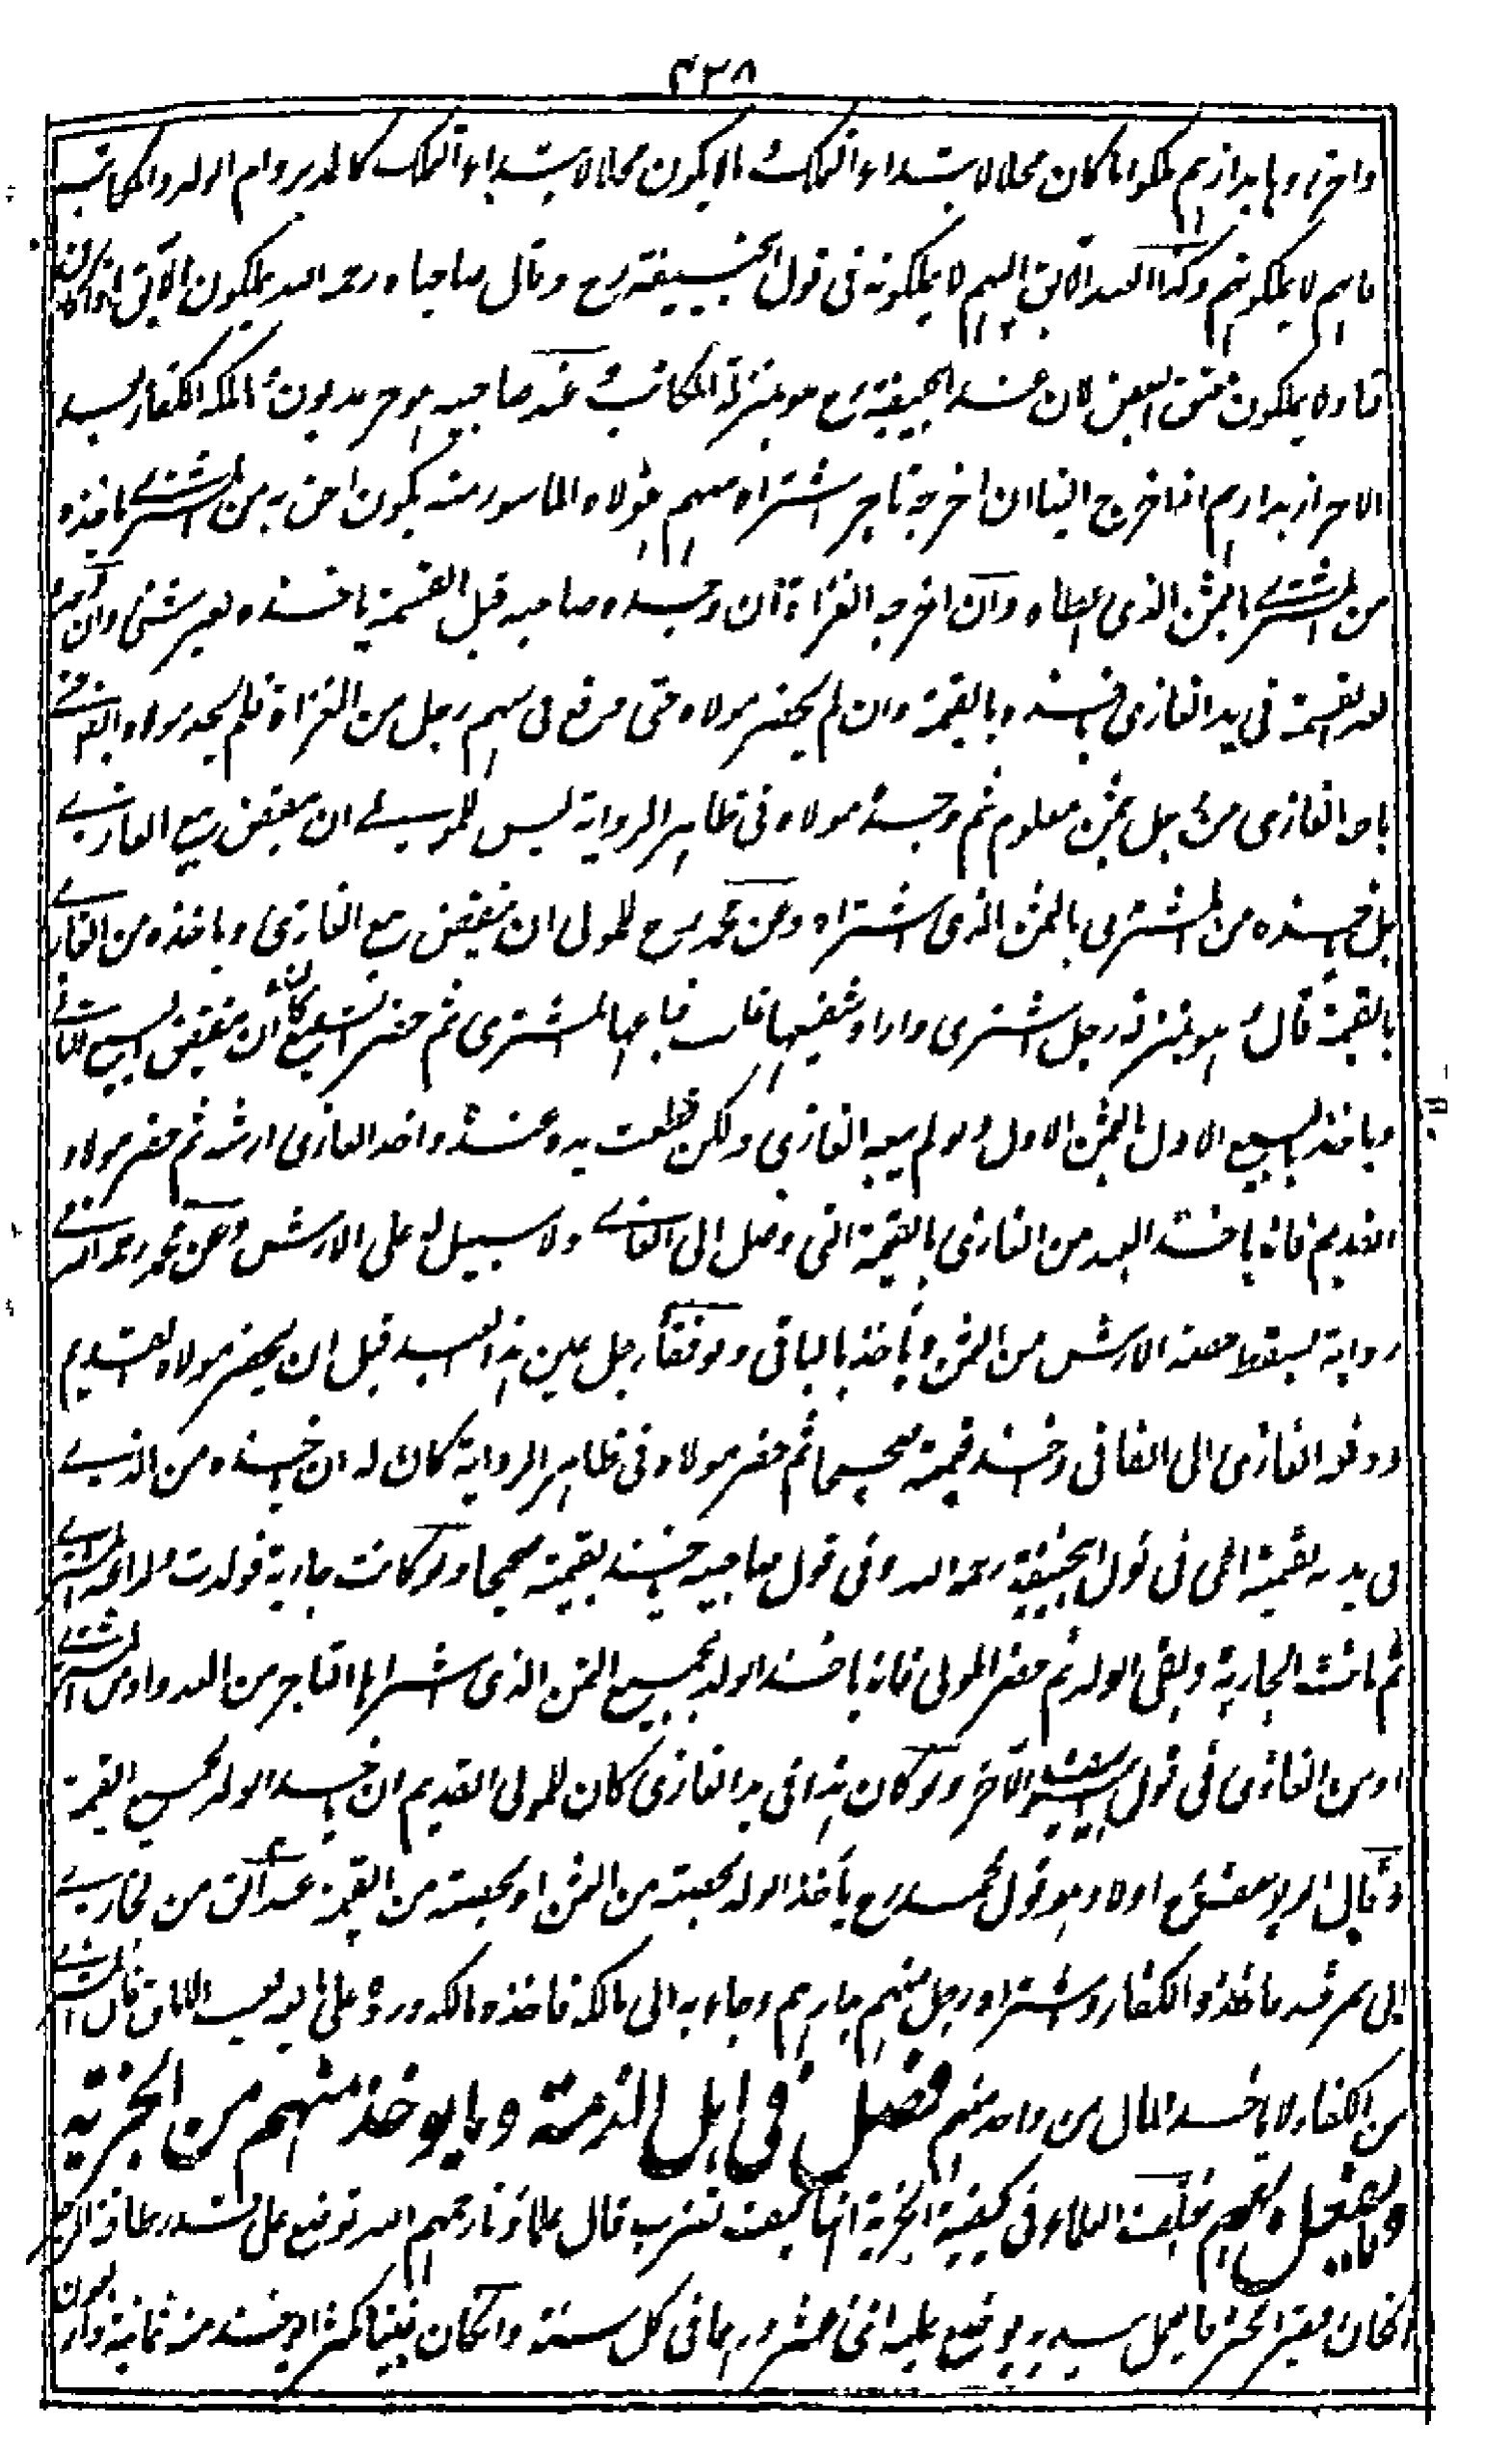 ٤٢٨
واحرزوها بدارهم ملكوا ما كان محلا لابتداء التملك وما لا يكون محلا لابتداء التملك كالمدبر وام الولد والمكاتب
فانهم لا يملكونهم وكذا العبد الآبق اليهم لا يملكونه في قول ابي حنيفة رح وقال صاحباه رحمه الله يملكون الآبق
لا يملكون معتق البعض لان عند ابي حنيفة رح هو بمنزلة المكاتب وعند صاحبيه هو حر مديون وما ملكه الكفار بعد
الاحراز بدارهم اذا خرج الينا ان اخرجه تاجر اشتراه منهم فمولاه الماسور منه يكون احق به من المشتري ياخذه
من المشتري بالثمن الذي اعطاه وان اخرجه الغزاة ان وجده صاحبه قبل القسمة ياخذه بغير شئ وان
بعد القسمة في يد الغازي ياخذه بالقيمة وان لم يحضر مولاه حتى وقع في سهم رجل من الغزاة فلم يجد مولاه القديم
باعه الغازي من رجل بثمن معلوم ثم وجده مولاه في ظاهر الرواية ليس للمولى ان ينقض بيع الغازي
بل ياخذه من المشتري بالثمن الذي اشتراه وعن محمد رح للمولى ان ينقض بيع الغازي وياخذه من الغازي
بالقيمة قال وهو بمنزلة رجل اشترى دارا وشفيعها غائب فباعها المشتري ثم حضر الشفيع كان له ان ينقض البيع الثاني
وياخذ بالبيع الاول بالثمن الاول ولو لم يبعه الغازي ولكن قطعت يده عنده واخذ الغازي ارشه ثم حضر مولاه
القديم فانه ياخذ العبد من الغازي بالقيمة التي وصل الى الغازي ولا سبيل له على الارش وعن محمد رحمه الله في
رواية يسقط حصة الارش من الثمن وياخذ بالباقي ولو فقأ رجل عين هذا العبد قبل ان يحضر مولاه القديم
ودفعه الغازي الى الفاقي واخذ قيمته صحيحا ثم حضر مولاه في ظاهر الرواية كان له ان ياخذه من الذي
في يديه بقيمته اعمى في قول ابي حنيفة رحمه الله وفي قول صاحبيه ياخذه بقيمته صحيحا ولو كانت جارية فولدت ولدا عند المشتري
ثم ماتت الجارية وبقي الولد ثم حضر المولى فانه ياخذ الولد بجميع الثمن الذي اشتراها التاجر من العدو او من المشتري
او من الغازي في قول ابي يوسف الآخر ولو كان هذا في يد الغازي كان للمولى القديم ان ياخذ الولد بجميع القيمة
وقال ابو يوسف رح اولا وهو قول محمد رح ياخذ الولد بحصته من الثمن او بحصته من القيمة عبد ابق من بخارى
الى سمرقند فاخذه الكفار واشتراه رجل منهم جارهم وجاء به الى مالكه فاخذه مالكه ورده على بايعه بعيب الاباق قال
من الكفار لا ياخذ المال من واحد منهم فصل في اهل الذمة وما يوخذ منهم من الجزية
وما يفعل بهم اختلف العلماء في كيفية الجزية انها كيف تضرب قال علماؤنا رحمهم الله توضع على قدر طاقة الرجل
ان كان فقيرا محترفا يعمل بيديه يوضع عليه اثنى عشر درهما في كل سنة وان كان غنيا مكثرا يوخذ منه ثمانية واربعون